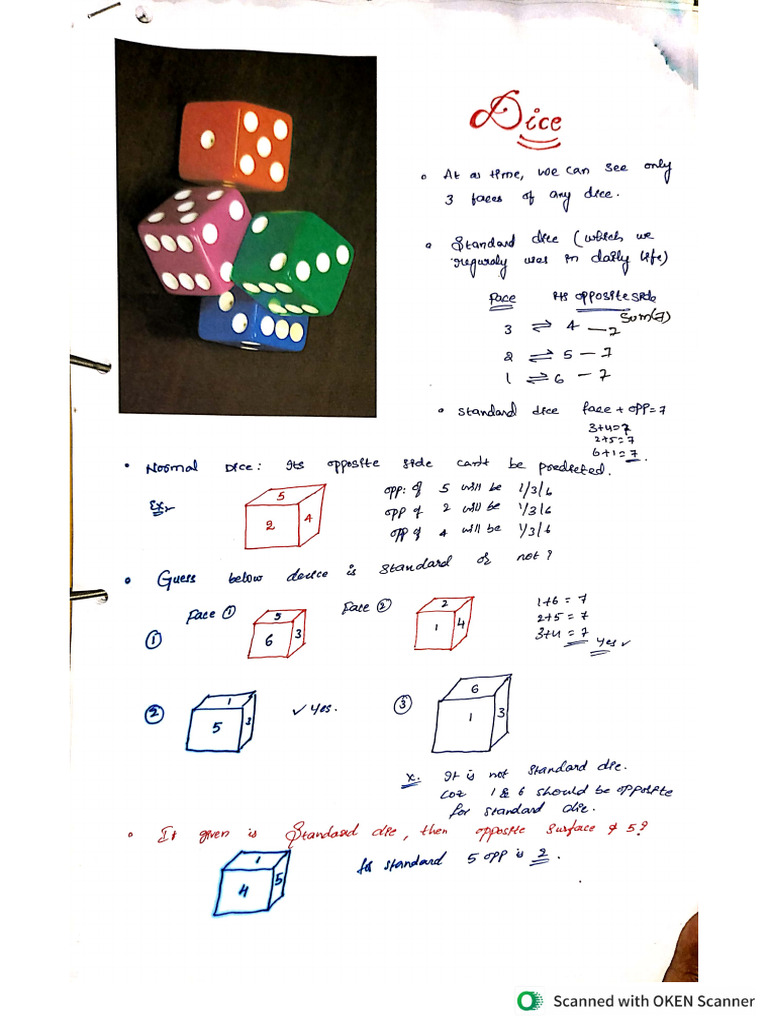 Dice
• At a time, we can see only
3 faces of any dice.
• Standard dice (which we
reguraly uses in daily life)
Face its opposite side
Sum(7)
3 ⇌ 4 — 7
2 ⇌ 5 — 7
1 ⇌ 6 — 7
• Standard dice face + opp = 7
3+4=7
2+5=7
6+1=7.
• Normal Dice: Its opposite side can't be predicted.
Ex:
5
2 4
opp: of 5 will be 1/3/6
opp of 2 will be 1/3/6
opp of 4 will be 1/3/6
• Guess below device is standard or not?
① Face ①
5
6 3
Face ②
2
1 4
1+6 = 7
2+5 = 7
3+4 = 7 Yes ✓
②
1
5 3
✓ Yes.
③
6
1 3
x. It is not standard die.
coz 1 & 6 should be opposite
for standard die.
• If given is Standard die, then opposite surface of 5?
1
4 5
for standard 5 opp is 2.
Scanned with OKEN Scanner